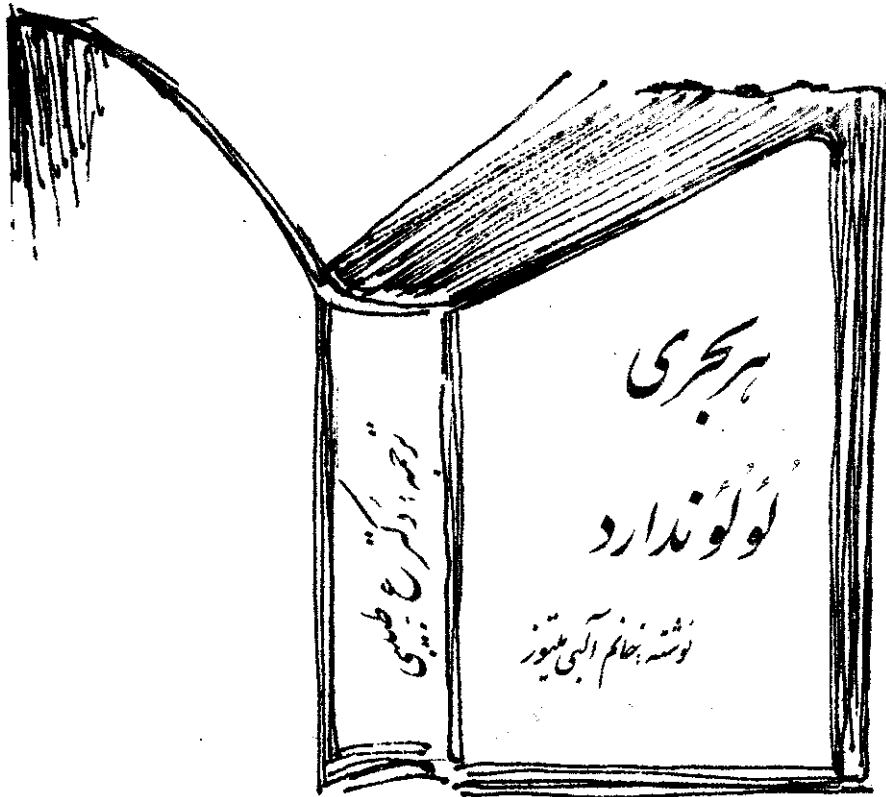 هر بحری
لُؤلُؤ ندارد
نوشته: خانم آلبی ملتیوز
ترجمه: دکتر ع طبیبی